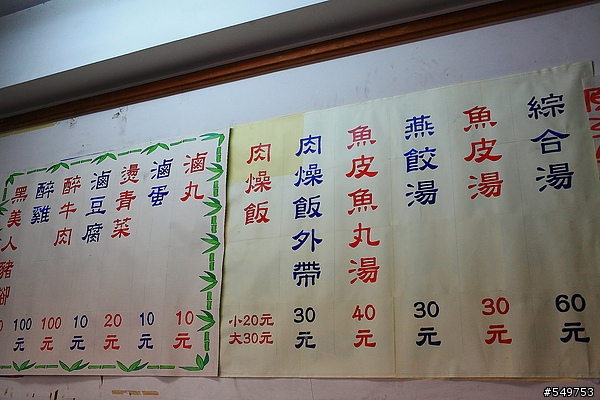 綜合湯
60元
魚皮湯
30元
燕餃湯
30元
魚皮魚丸湯
40元
肉燥飯外帶
30元
肉燥飯
小20元
大30元
滷丸
10元
滷蛋
10元
燙青菜
20元
滷豆腐
10元
醉牛肉
100元
醉雞
100元
黑美人豬腳
#549753